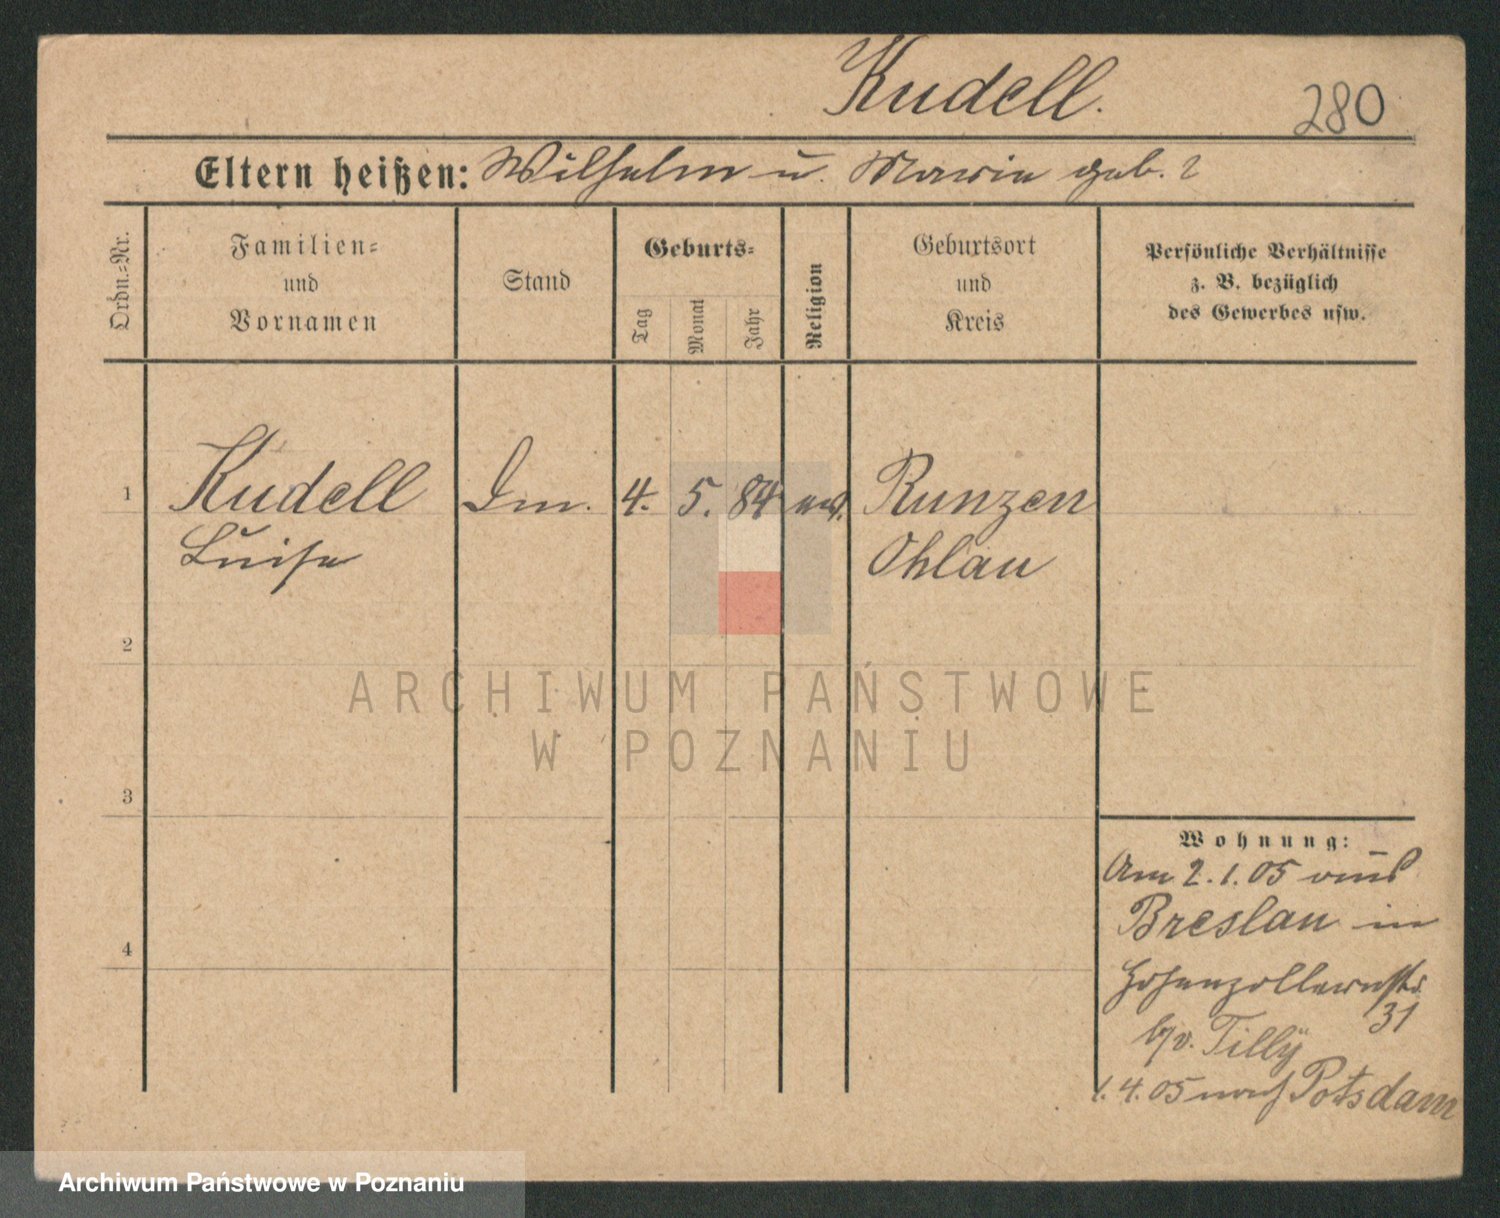 Kudell.
280
Eltern heißen: Wilhelm u. Marie geb. ?
Ordn.-Nr.
Familien-
und
Vornamen
Stand
Geburts-
Tag
Monat
Jahr
Religion
Geburtsort
und
Kreis
Persönliche Verhältnisse
z. B. bezüglich
des Gewerbes usw.
1 Kudell 4. 5. 84 Runzen
Luise Ohlau
2
ARCHIWUM PAŃSTWOWE
W POZNANIU
3
4
Wohnung:
Am 2.1.05 aus
Breslau in
Hohenzollernstr.
31
b/v. Tilly
1.4.05 nach Potsdam
Archiwum Państwowe w Poznaniu